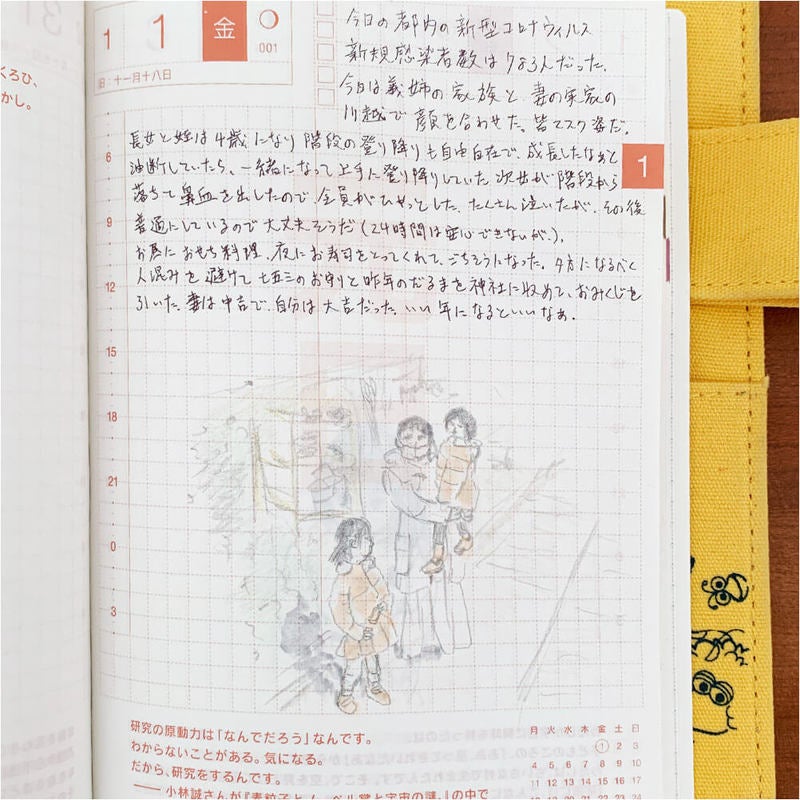 くろひ、
かし。
1 1 金
001
旧・十一月十八日
今日の都内の新型コロナウィルス
新規感染者数は783人だった。
今日は義姉の家族と、妻の実家の
川越で顔を合わせた。皆マスク姿だ。
長女と姪は4歳になり階段の登り降りも自由自在で、成長したなぁと
油断していたら、一緒になって上手に登り降りしていた次女が階段から
落ちて鼻血を出したので全員がひやっとした。たくさん泣いたが、その後
普通にしているので大丈夫そうだ(24時間は安心できないが)。
お昼におせち料理、夜にお寿司をとってくれて、ごちそうになった。夕方になるべく
人混みを避けて七五三のお守りと昨年のだるまを神社に収めて、おみくじを
引いた。妻は中吉で、自分は大吉だった。いい年になるといいなぁ。
1
6
9
12
15
18
21
0
3
研究の原動力は「なんでだろう」なんです。
わからないことがある。気になる。
だから、研究をするんです。
──小林誠さんが『素粒子とノーベル賞と宇宙の謎。』の中で
月 火 水 木 金 土 日
1 2 3
4 5 6 7 8 9 10
11 12 13 14 15 16 17